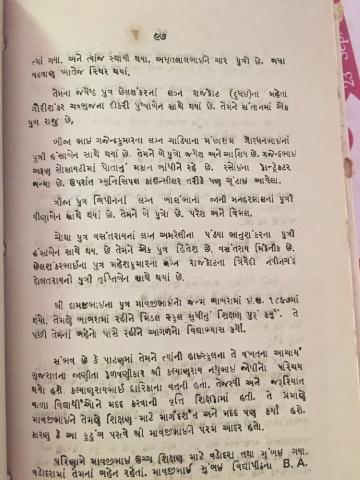 ૯૭
ત્યાં ગયા. અને ત્યાંજ સ્થાયી થયા. અમૃતલાલભાઇને ચાર પુત્રી છે. બધા
વઢવાણ ખાતેજ સ્થિર થયાં.
તેમના જયેષ્ઠ પુત્ર છેલશંકરનાં લગ્ન રાજકોટ (દુધઇ)ના મહેતા
ગૌરીશંકર ચત્રભુજના દીકરી પુષ્પાબેન સાથે થયાં છે. તેમને સંતાનમાં એક
પુત્ર રાજુ છે.
બીજા ભાઇ ગજેન્દ્રકુમારના લગ્ન ચાડિયાના મંછારામ ગૌરધનભાઇનાં
પુત્રી હંસાબેન સાથે થયાં છે. તેમને બે પુત્રો જયેશ અને આસિષ છે. ગજેન્દ્રભાઇ
સોસાયટીમાં પોતાનું મકાન બાંધીને રહે છે. રસોઇના કોન્ટ્રેક્ટર
બન્યા છે. ઉપરાંત મ્યુનિસિપલ કાઉન્સીલર તરીકે પણ ચૂંટાઇ આવેલા.
ત્રીજા પુત્ર બિપીનનાં લગ્ન બોલુંભાના જાની મનહરલાલનાં પુત્રી
વીણાબેન સાથે થયાં છે. તેમને બે પુત્રો છે. પરેશ અને વિમલ.
ચોથા પુત્ર વસંતરાયનાં લગ્ન અમરેલીના પંડયા ભાનુશંકરના પુત્રી
હંસાબેન સાથે થયા. છે તેમને એક પુત્ર હિતેશ છે. વસંતરાય મિકેનીક છે.
છેલશંકરભાઇના પુત્ર મહેશકુમારના લગ્ન રાજકોટના ત્રિવેદી નવીનચંદ્ર
દોલતરાયની પુત્રી તૃપ્તિબેન સાથે થયાં છે.
શ્રી દામજીભાઇના પુત્ર માવજીભાઇનો જન્મ બાબરામાં ઇ.સ. ૧૮૯૭માં
થયો. તેમણે બાબરામાં રહીને મિડલ સ્કુલ સુધીનું શિક્ષણ પુરું કર્યું. તે
પછી તેમનાં બહેનની પાસે રહીને આગળનો વિદ્યાભ્યાસ કર્યો.
સંભવ છે કે પાટણમાં તેમને ત્યાંની હાઇસ્કુલના તે વખતના આચાર્ય
ગુજરાતના જાણીતા કેળવણીકાર શ્રી કલ્યાણરાય નથુભાઇ જોષીનો પરિચય
થયો હશે. કલ્યાણરાયભાઇ દ્વારિકાના વતની હતા. તેજસ્વી અને જરૂરિયાત
વાળા વિદ્યાર્થીઓને મદદ કરવાની વૃત્તિ શિક્ષકોમાં હતી. તે પ્રમાણે
માવજીભાઇને તેમણે શિક્ષણ માટે માર્ગદર્શન અને મદદ પણ કર્યા હશે.
કારણ કે આ કુટુંબ પરત્વે શ્રી માવજીભાઇને પરમ આદર હતો.
પરિણામે માવજીભાઇ ઉચ્ચ શિક્ષણ માટે વડોદરા તથા મુંબઇ ગયા.
વડોદરામાં તેમનાં બહેન રહેતાં. માવજીભાઇ મુંબઇ વિદ્યાપીઠના B. A.